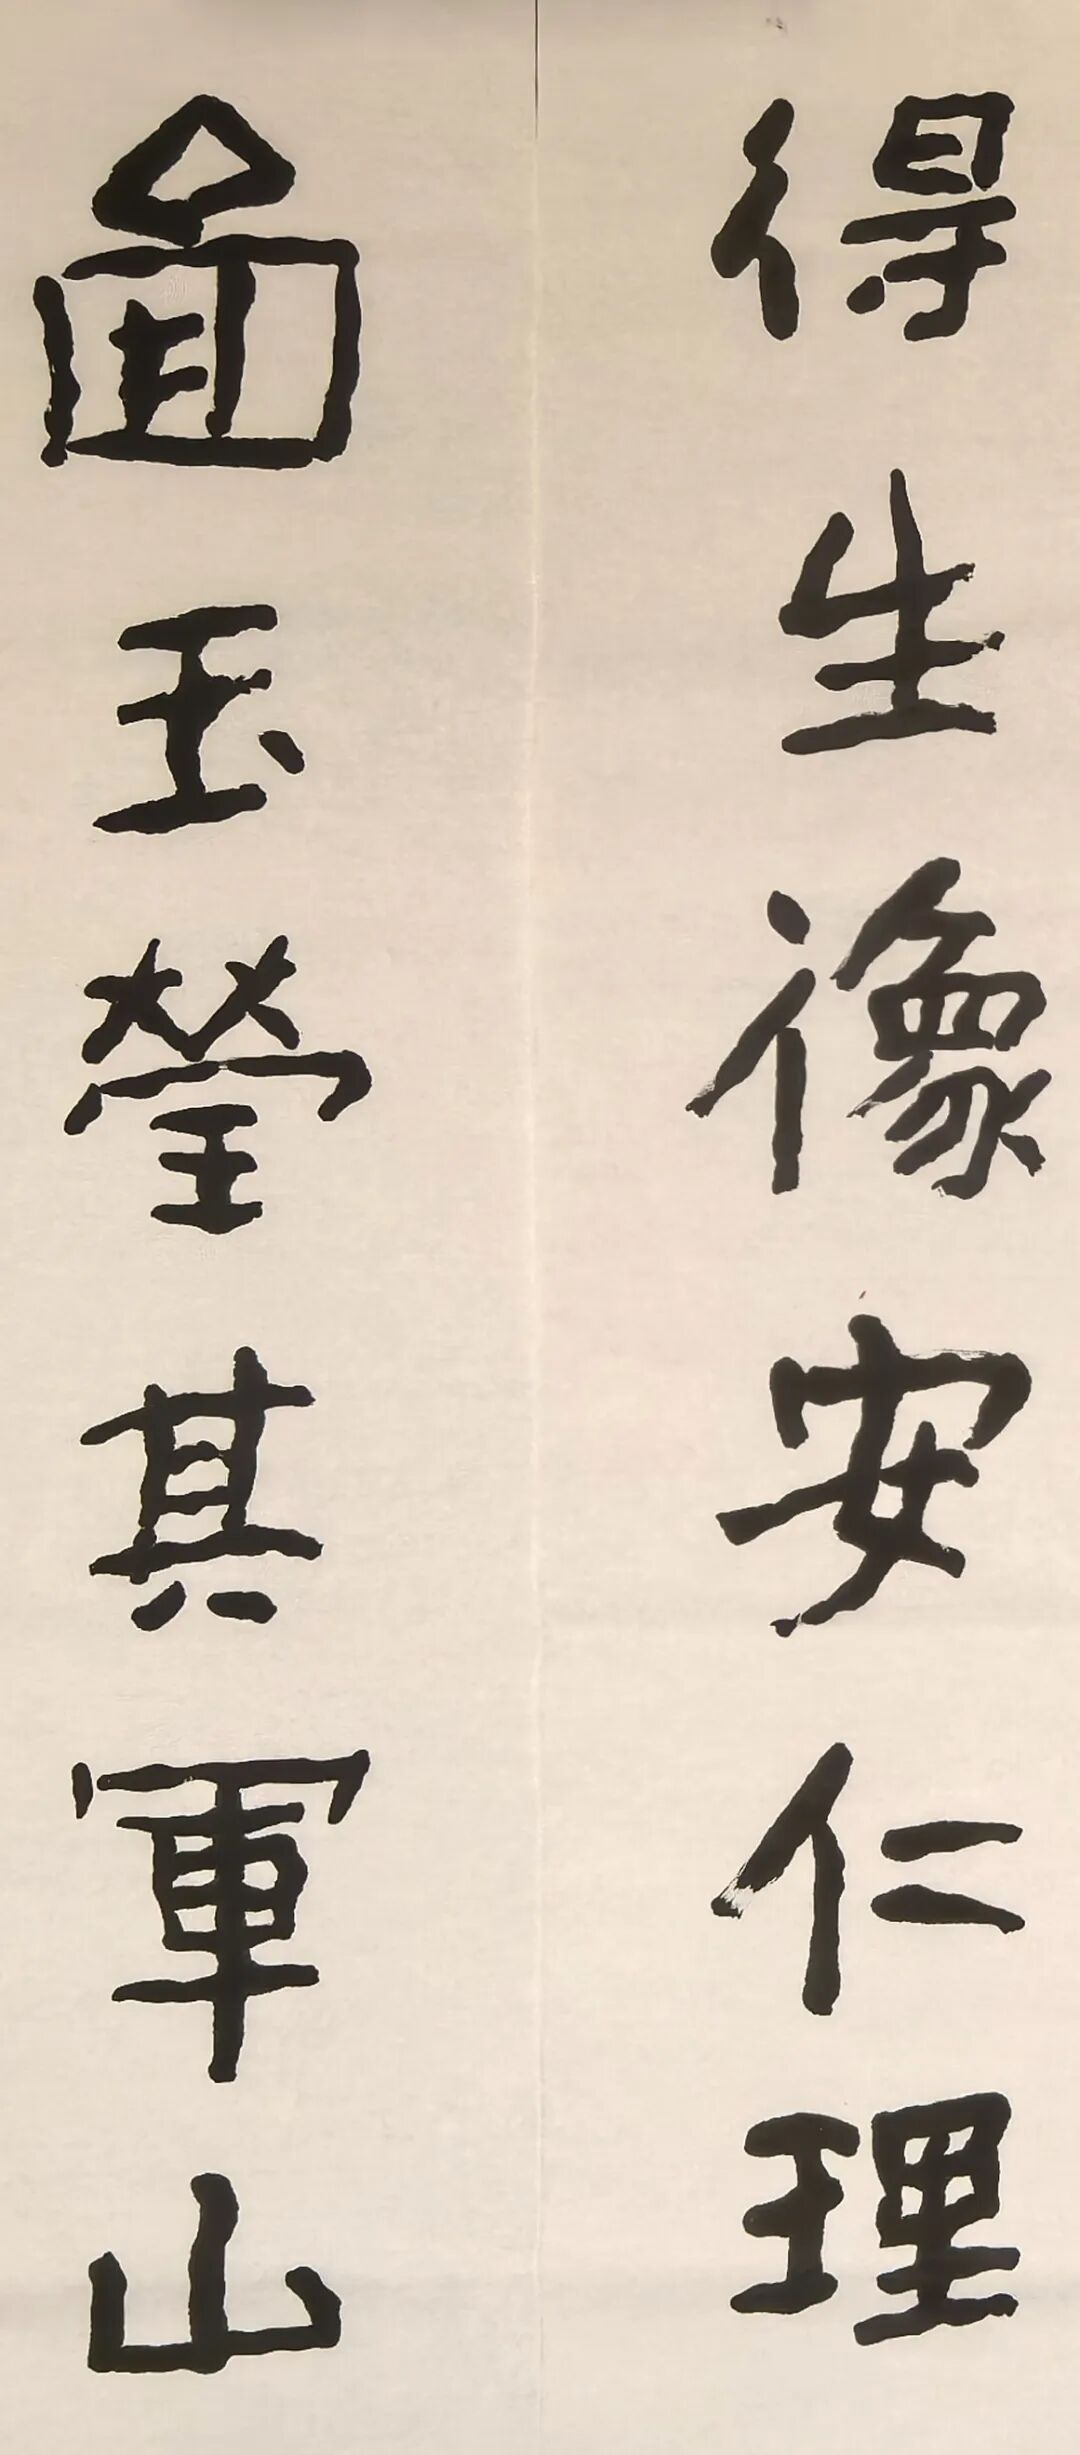 得生像安仁理
玉瑩其軍山